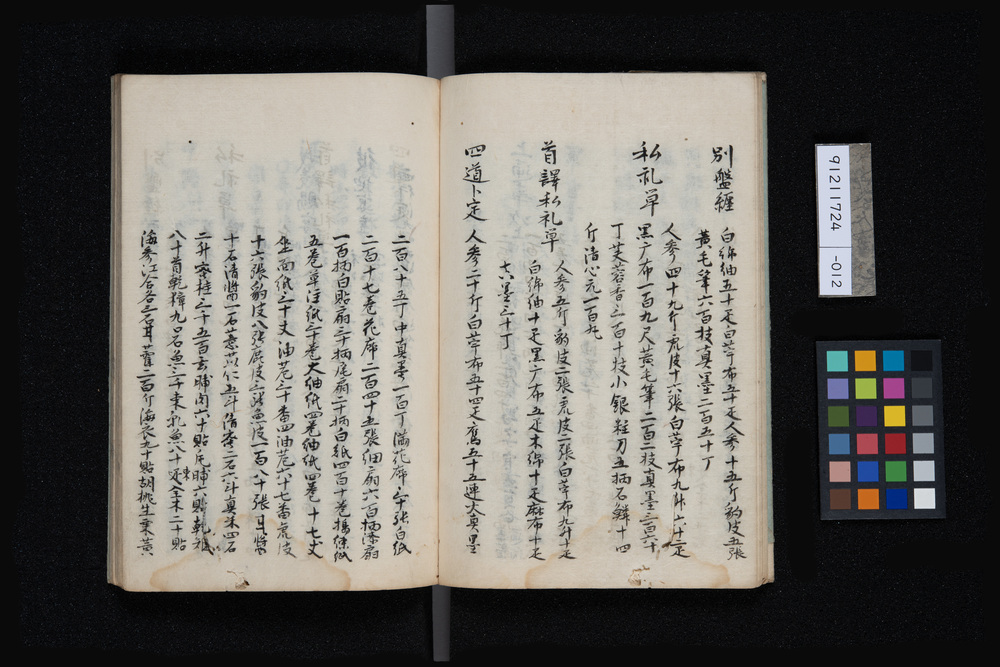 別盤纒 白綿紬五十疋白苧布五十疋人參十五斤豹皮五張
黃毛筆六百枝真墨二百五十丁
私礼單 人參四十九斤虎皮十六張白苧布九十六十疋
黑广布一百九尺黃毛筆二百二枝真墨三百六十
丁芙蓉香三百十枝小銀粧刀五柄石鱗十四
斤清心元一百丸
首譯私礼單 人參五斤豹皮二張虎皮二張白苧布九十疋
白綿紬十疋黑广布五疋木綿十疋麻布十疋
真墨三十丁
四道卜定 人參二十斤白苧布五十四疋鷹五十五連大真墨
二百八十五丁中真墨一百丁滿花席三十張白紙
二百十七卷花席二百四十五張細扇六百柄漆扇
一百柄白貼扇三十柄尾扇二十柄白紙四百十卷楊紙
五卷草注紙三十卷大細紙四卷細紙四卷十七丈
坐面紙三十丈油芚三十番四油芚六十七番虎皮
十六張豹皮八張鹿皮三張魚皮一百八十張耳醬
十石清醬一石薏苡仁五斗清蜜二石六斗真末四石
二升蜜桂三千五百去脯肉六十貼片脯六貼乾雉
八十首乾獐九口石魚三千束乳魚八十疋全卜二十貼
海參江合各三石耳藿二百斤海衣九十貼胡桃生栗黃
91211724
-012